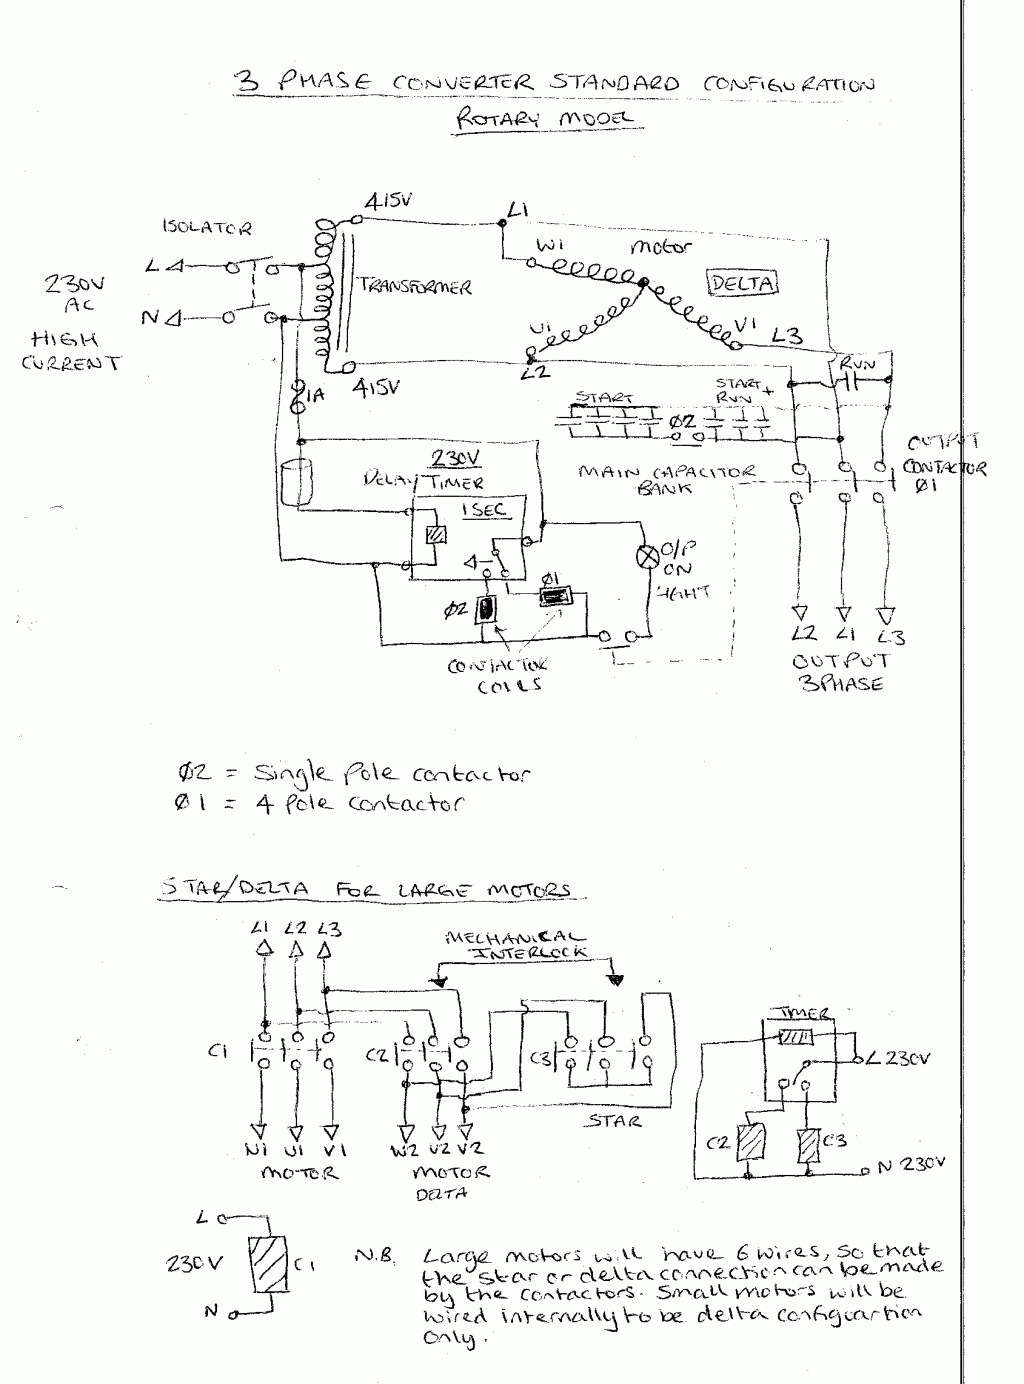 3 PHASE CONVERTER STANDARD CONFIGURATION
ROTARY MODEL
ISOLATOR
415V
L1
L
230V
AC
N
HIGH
CURRENT
TRANSFORMER
W1
motor
DELTA
U1
V1
L3
L2
415V
1A
RUN
START
START +
RUN
Ø2
MAIN CAPACITOR
BANK
OUTPUT
CONTACTOR
Ø1
230V
DELAY TIMER
1SEC
O/P
ON
Ø1
Ø2
CONTACTOR
COILS
L2 L1 L3
OUTPUT
3PHASE
Ø2 = Single Pole contactor
Ø1 = 4 Pole contactor
STAR/DELTA FOR LARGE MOTORS
L1 L2 L3
MECHANICAL
INTERLOCK
C1
C2
C3
STAR
U1 V1
MOTOR
W2 U2 V2
MOTOR
DELTA
TIMER
L 230V
C2
C3
N 230V
L
230V
C1
N
N.B. Large motors will have 6 wires, so that
the star or delta connection can be made
by the contactors. Small motors will be
wired internally to be delta configuartion
only.